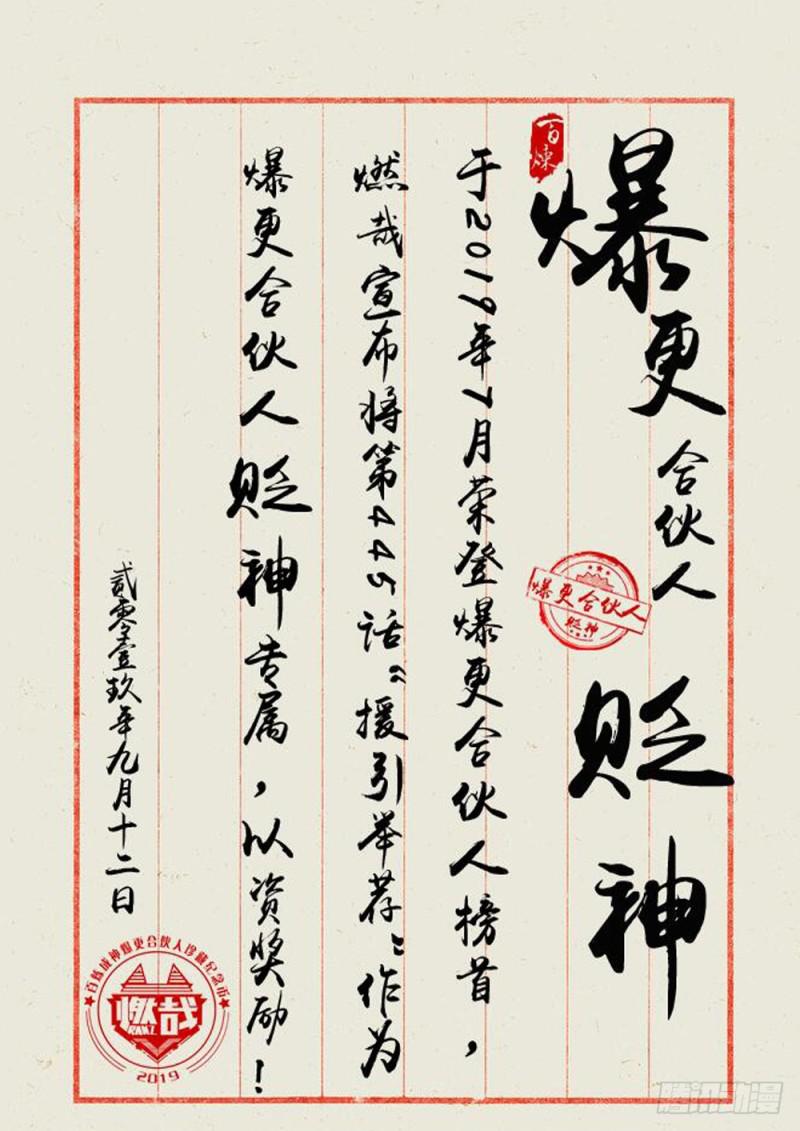 爆更合伙人 贬神
百炼
爆更合伙人
贬神
于2019年7月荣登爆更合伙人榜首，
燃哉宣布将第445话“援引举荐”作为
爆更合伙人贬神专属，以资奖励！
贰零壹玖年九月十二日
百炼成神爆更合伙人珍藏纪念币
燃哉
RANZ
2019
腾讯动漫